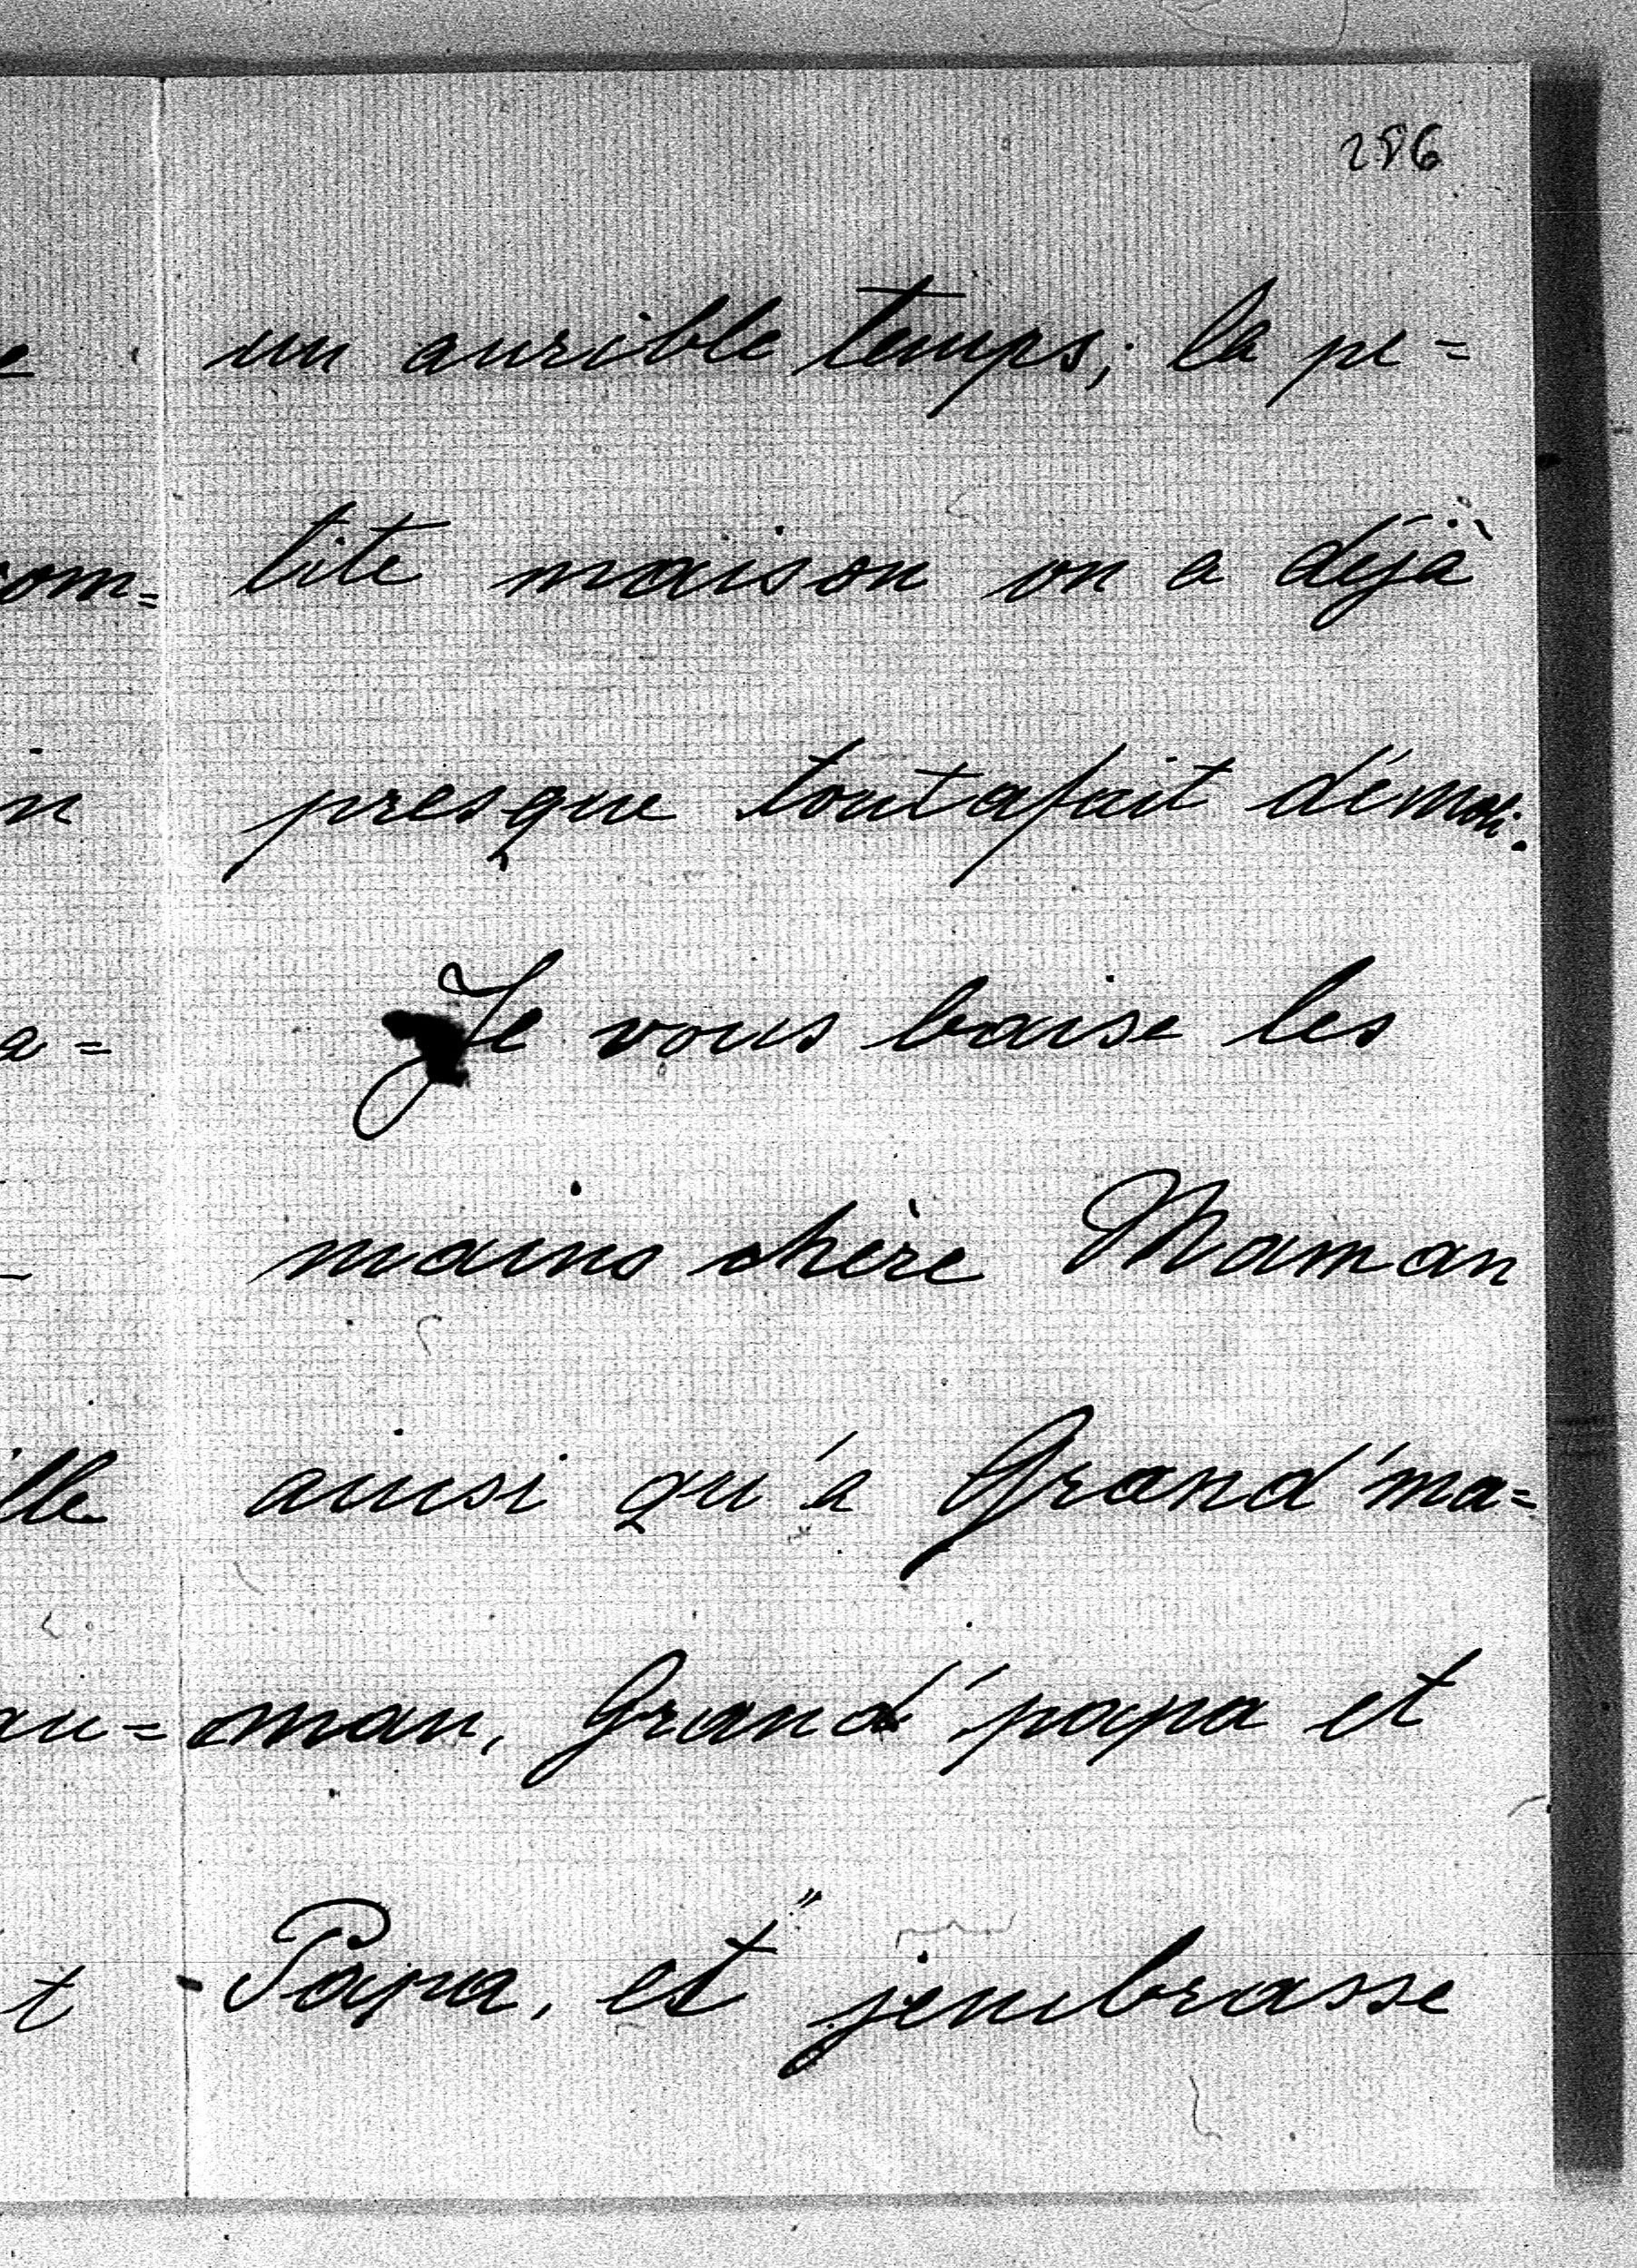 286
un aurible temps; la pe=
tite maison on a déjà
presque toutafait démoli.
Je vous baise les
mains chère Maman
ainsi qu'a Grand'ma=
man, Grand'papa et
Papa, et j'embrasse